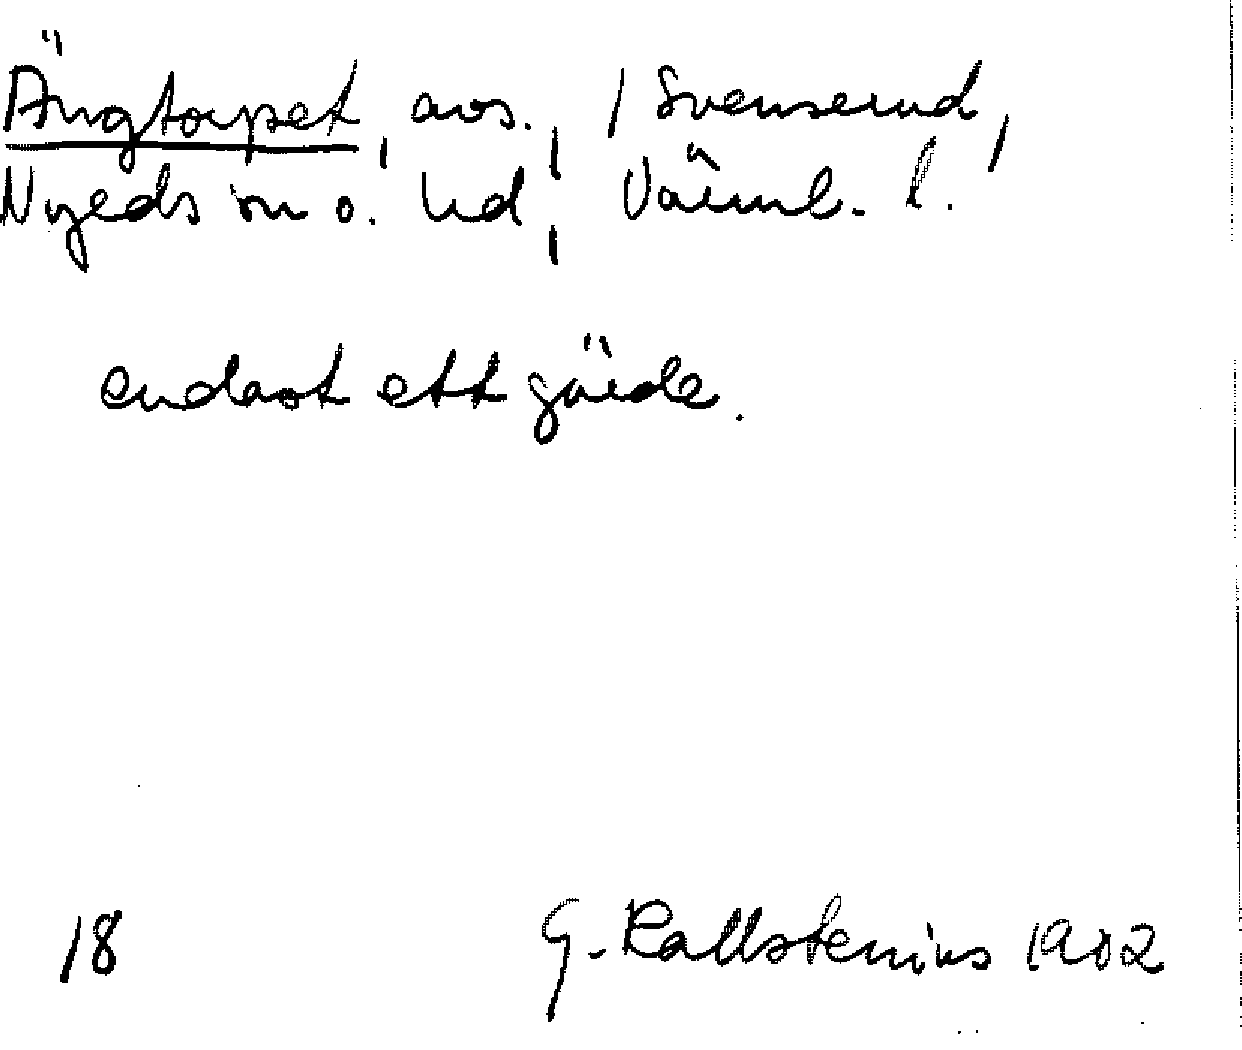 Ängtorpet, avs., / Svenserud,
Nyeds sn o. hd, Värml. l.
endast ett gärde.
18 G. Kallstenius 1902